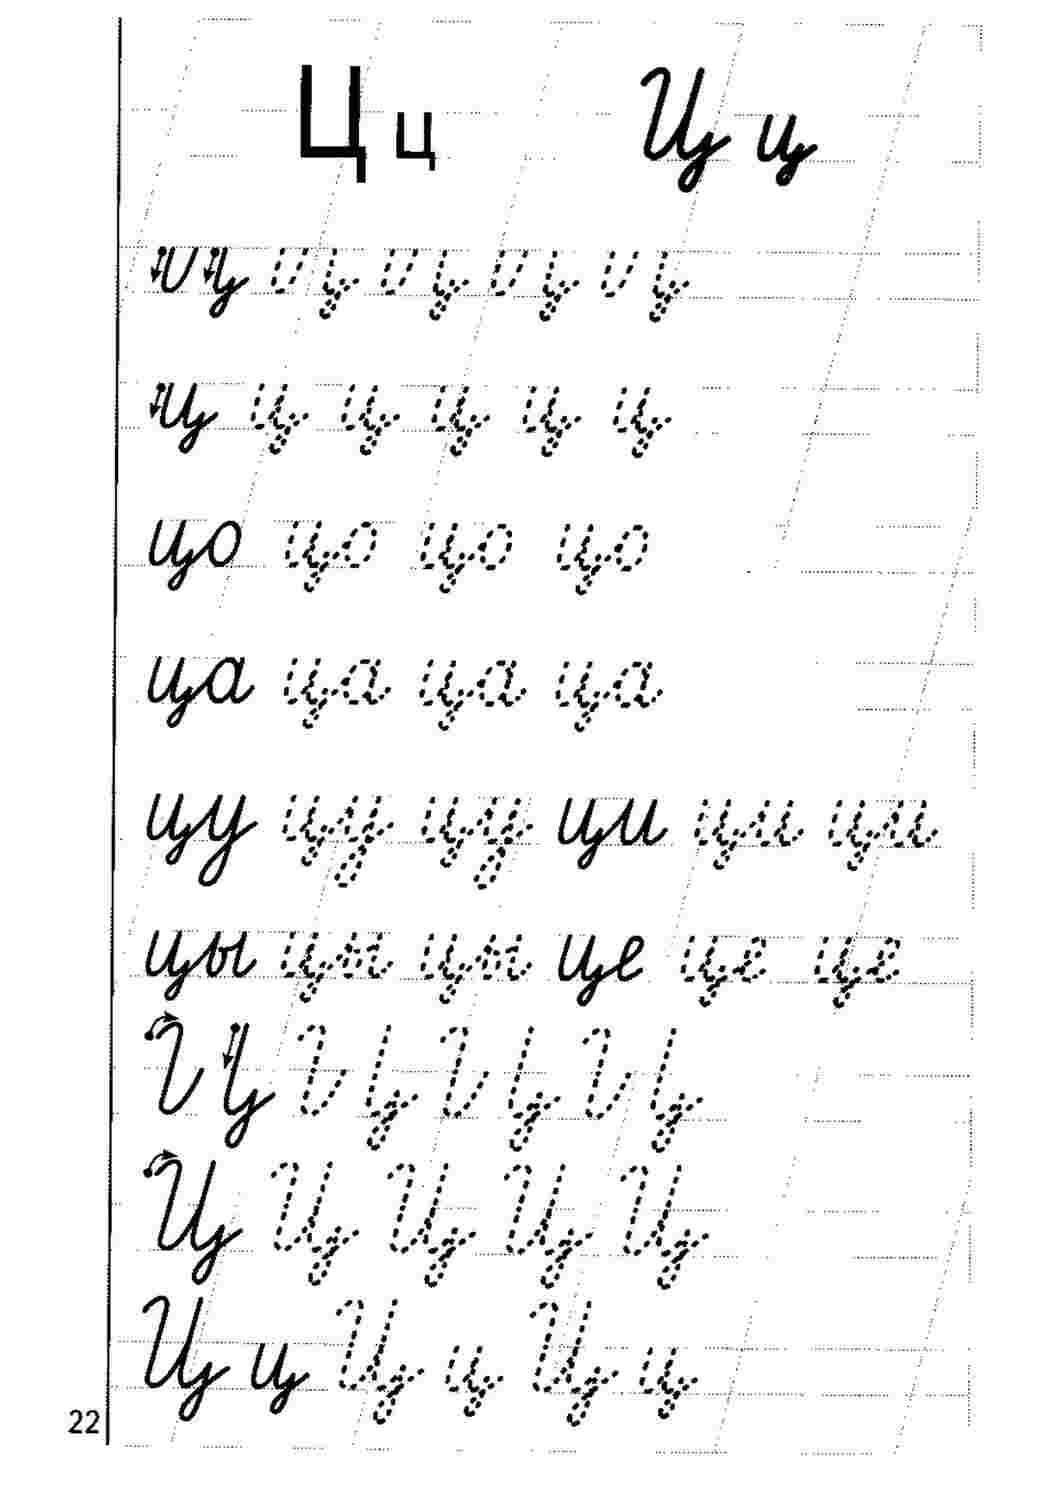 Ц ц Ц ц
ц ц ц ц ц
ц ц ц ц ц ц
цо цо цо цо
ца ца ца ца
цу цу цу ци ци ци
цы цы цы це це це
Ц Ц Ц Ц
Ц Ц Ц Ц Ц
Ц ц Ц ц Ц ц
22